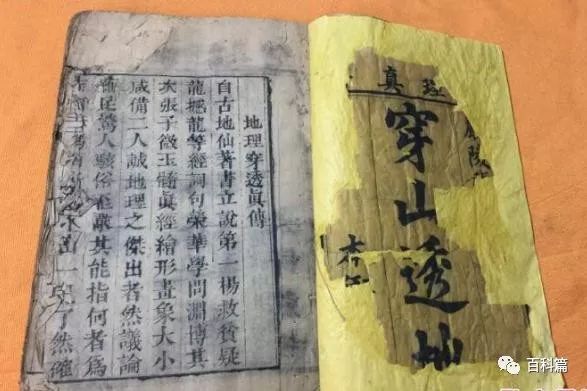 真
穿山透
地理穿透眞傳
自古地仙著書立說第一楊救貧疑
龍撼龍等經詞句榮華學問淵博其
次張子微玉髓眞經繪形畫象大小
咸備二人誠地理之傑出者然議論
足驚人駭俗在歉其能指何者爲
一了然確
百科篇